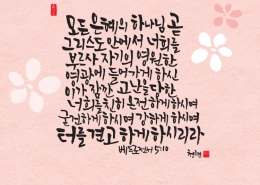 모든 은혜의 하나님 곧
그리스도 안에서 너희를
부르사 자기의 영원한
영광에 들어가게 하신
이가 잠깐 고난을 당한
너희를 친히 온전하게 하시며
굳건하게 하시며 강하게 하시며
터를 견고하게 하시리라
베드로전서 5:10